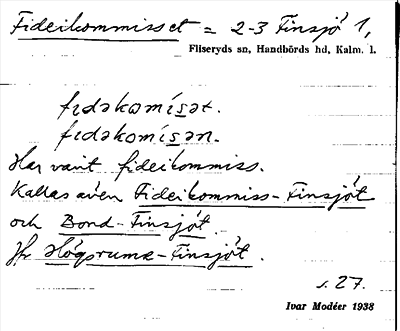 Fideikommisset = 2-3 Finsjö 1,
Fliseryds sn, Handbörds hd, Kalm. l.
fidəkomísət.
fidəkomísən.
Har varit fideikommiss.
Kallas även Fideikommiss-Finsjöt
och Bond-Finsjöt.
Jfr Högsrums-Finsjöt.
s. 27.
Ivar Modéer 1938